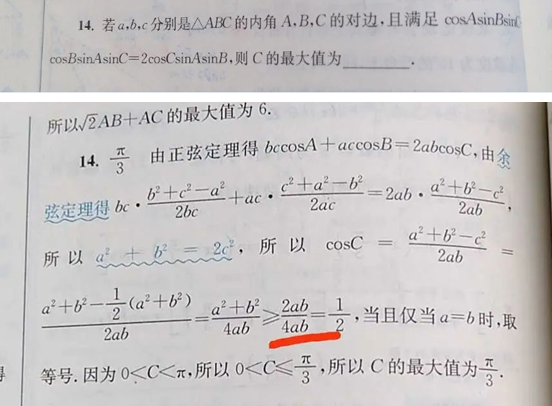 14. 若a,b,c分别是△ABC的内角A,B,C的对边,且满足 cosAsinBsin
cosBsinAsinC=2cosCsinAsinB,则C的最大值为________.
所以√2AB+AC的最大值为6.
14. π/3 由正弦定理得 bccosA+accosB=2abcosC,由余
弦定理得 bc·(b²+c²-a²)/(2bc)+ac·(c²+a²-b²)/(2ac)=2ab·(a²+b²-c²)/(2ab),
所以 a²+b²=2c²,所以 cosC=(a²+b²-c²)/(2ab)=
(a²+b²-1/2(a²+b²))/(2ab)=(a²+b²)/(4ab)≥(2ab)/(4ab)=1/2,当且仅当a=b时,取
等号.因为0<C<π,所以0<C≤π/3,所以C的最大值为π/3.